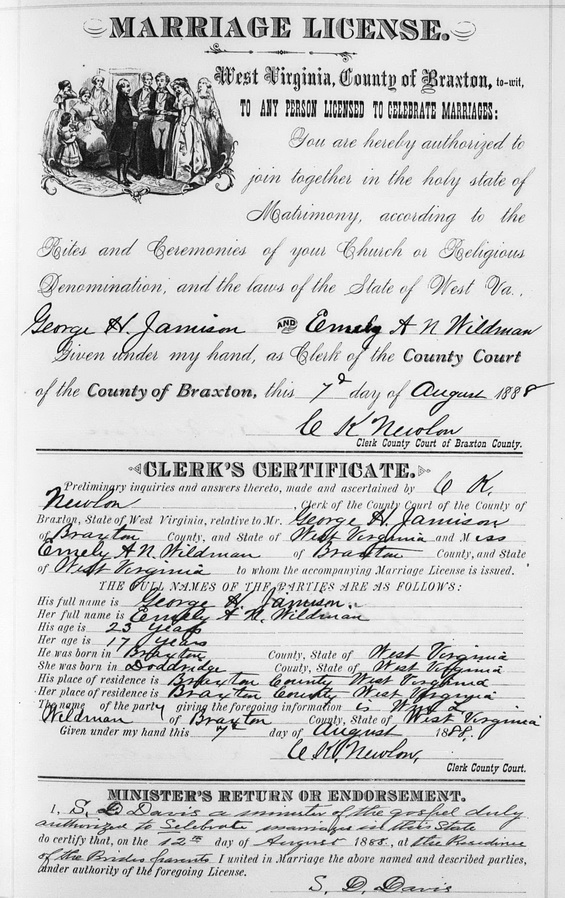 MARRIAGE LICENSE.
West Virginia, County of Braxton, to-wit,
TO ANY PERSON LICENSED TO CELEBRATE MARRIAGES:
You are hereby authorized to
join together in the holy state of
Matrimony, according to the
Rites and Ceremonies of your Church or Religious
Denomination, and the laws of the State of West Va.,
George H. Jamison AND Emely A N Wildman
Given under my hand, as Clerk of the County Court
of the County of Braxton, this 7d day of August 1888
C K Newlon
Clerk County Court of Braxton County.
CLERK'S CERTIFICATE.
Preliminary inquiries and answers thereto, made and ascertained by C K.
Newlon, Clerk of the County Court of the County of
Braxton, State of West Virginia, relative to Mr. George H. Jamison
of Braxton County, and State of West Virginia and Miss
Emely A N. Wildman of Braxton County, and State
of West Virginia to whom the accompanying Marriage License is issued.
THE FULL NAMES OF THE PARTIES ARE AS FOLLOWS:
His full name is George H. Jamison.
Her full name is Emely A. N. Wildman
His age is 23 years
Her age is 17 years
He was born in Braxton County, State of West Virginia
She was born in Doddridge County, State of West Virginia
His place of residence is Braxton County West Virginia
Her place of residence is Braxton County West Virginia
The name of the party giving the foregoing information is Wm
Wildman of Braxton County, State of West Virginia
Given under my hand this 7d day of August 1888.
C K. Newlon,
Clerk County Court.
MINISTER'S RETURN OR ENDORSEMENT.
I, S. D. Davis a minister of the gospel duly
authorized to Selebrate marriages in this State
do certify that, on the 12th day of August 1888, at the Residence
of the Brides parents I united in Marriage the above named and described parties,
under authority of the foregoing License.
S. D. Davis